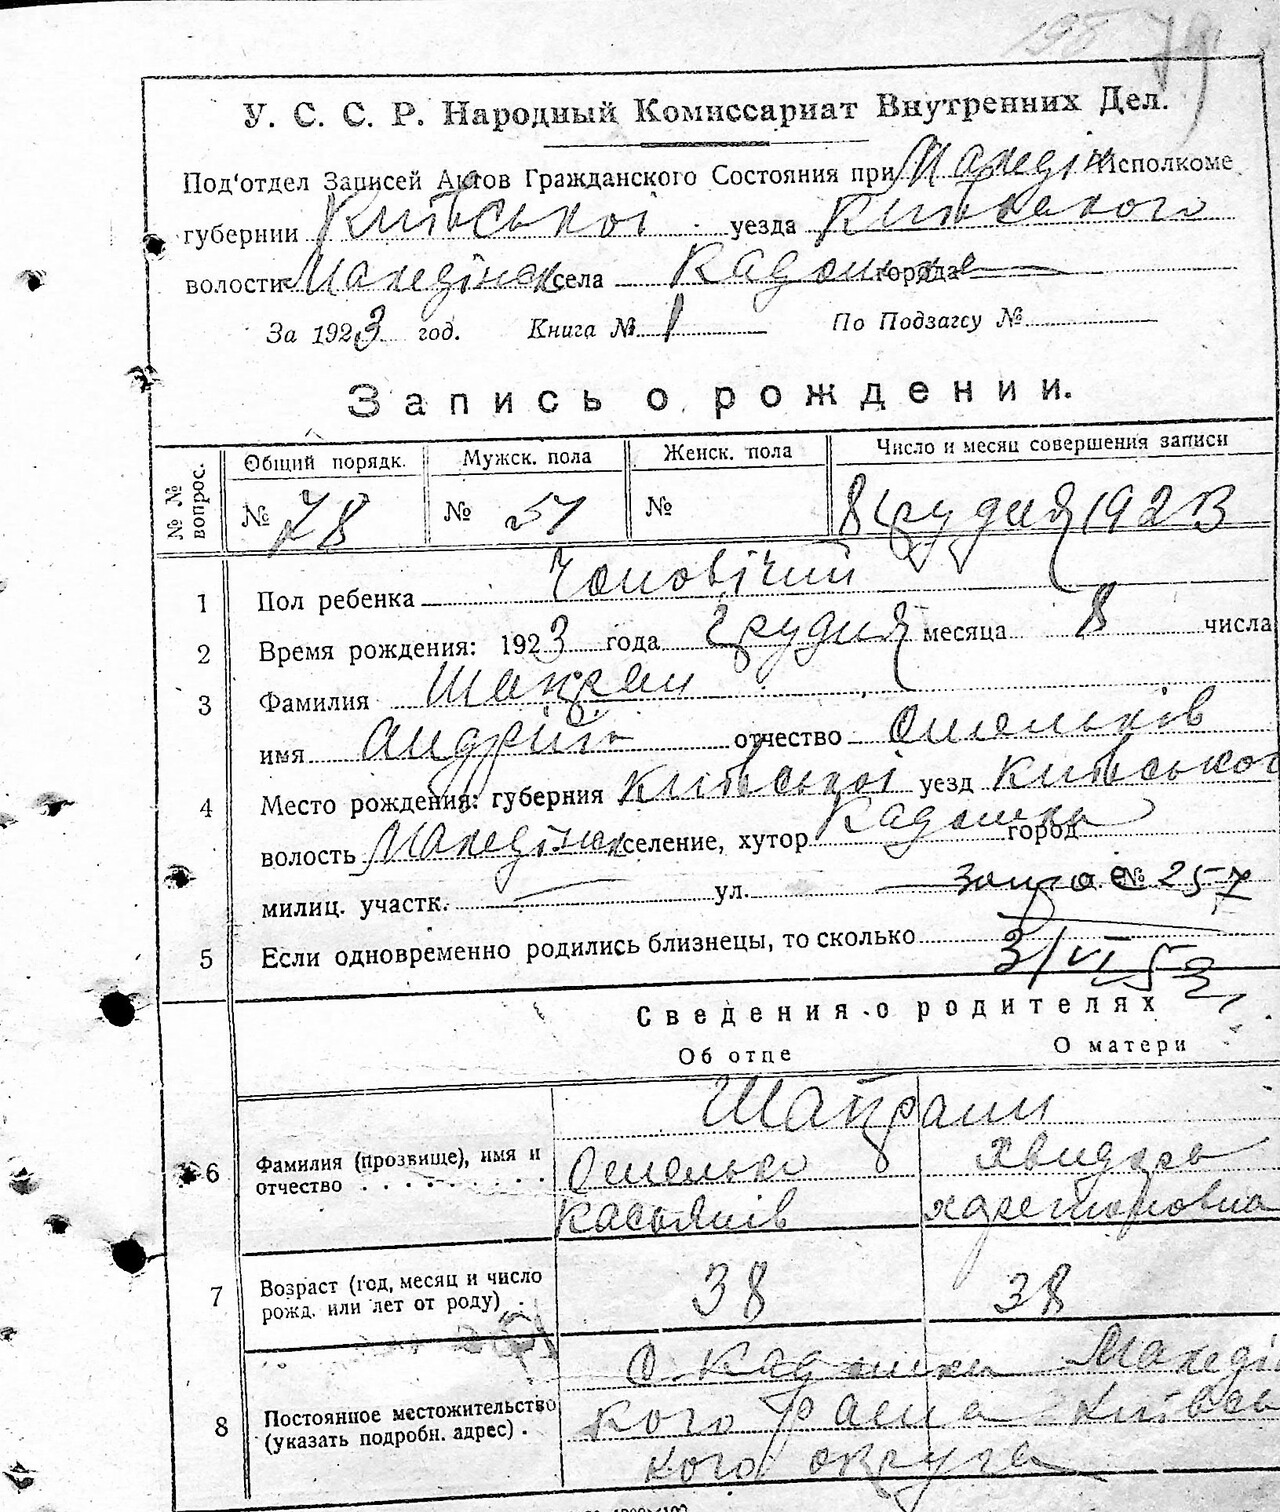 79
У. С. С. Р. Народный Комиссариат Внутренних Дел.
Под'отдел Записей Актов Гражданского Состояния при Македін Исполкоме
губернии Київської уезда Київського
волости Македінск села города
За 1923 год. Книга № 1 По Подзагсу №
Запись о рождении.
№ № вопрос. Общий порядк. Мужск. пола Женск. пола Число и месяц совершения записи
№ 78 № 51 № 8 грудня 1923
1 Пол ребенка Чоловічий
2 Время рождения: 1923 года Грудня месяца 8 числа
3 Фамилия Шапран
имя Андрій отчество Омельків
4 Место рождения: губерния Київської уезд Київського
волость Македінск селение, хутор город
милиц. участк. ул. № 257
5 Если одновременно родились близнецы, то сколько
3/VI 53
Сведения о родителях
Об отце О матери
Шапрани
6 Фамилия (прозвище), имя и Омелько
отчество Касьянів
7 Возраст (год, месяц и число 38 38
рожд. или лет от роду)
8 Постоянное местожительство
(указать подробн. адрес). кого Київсь
кого округа